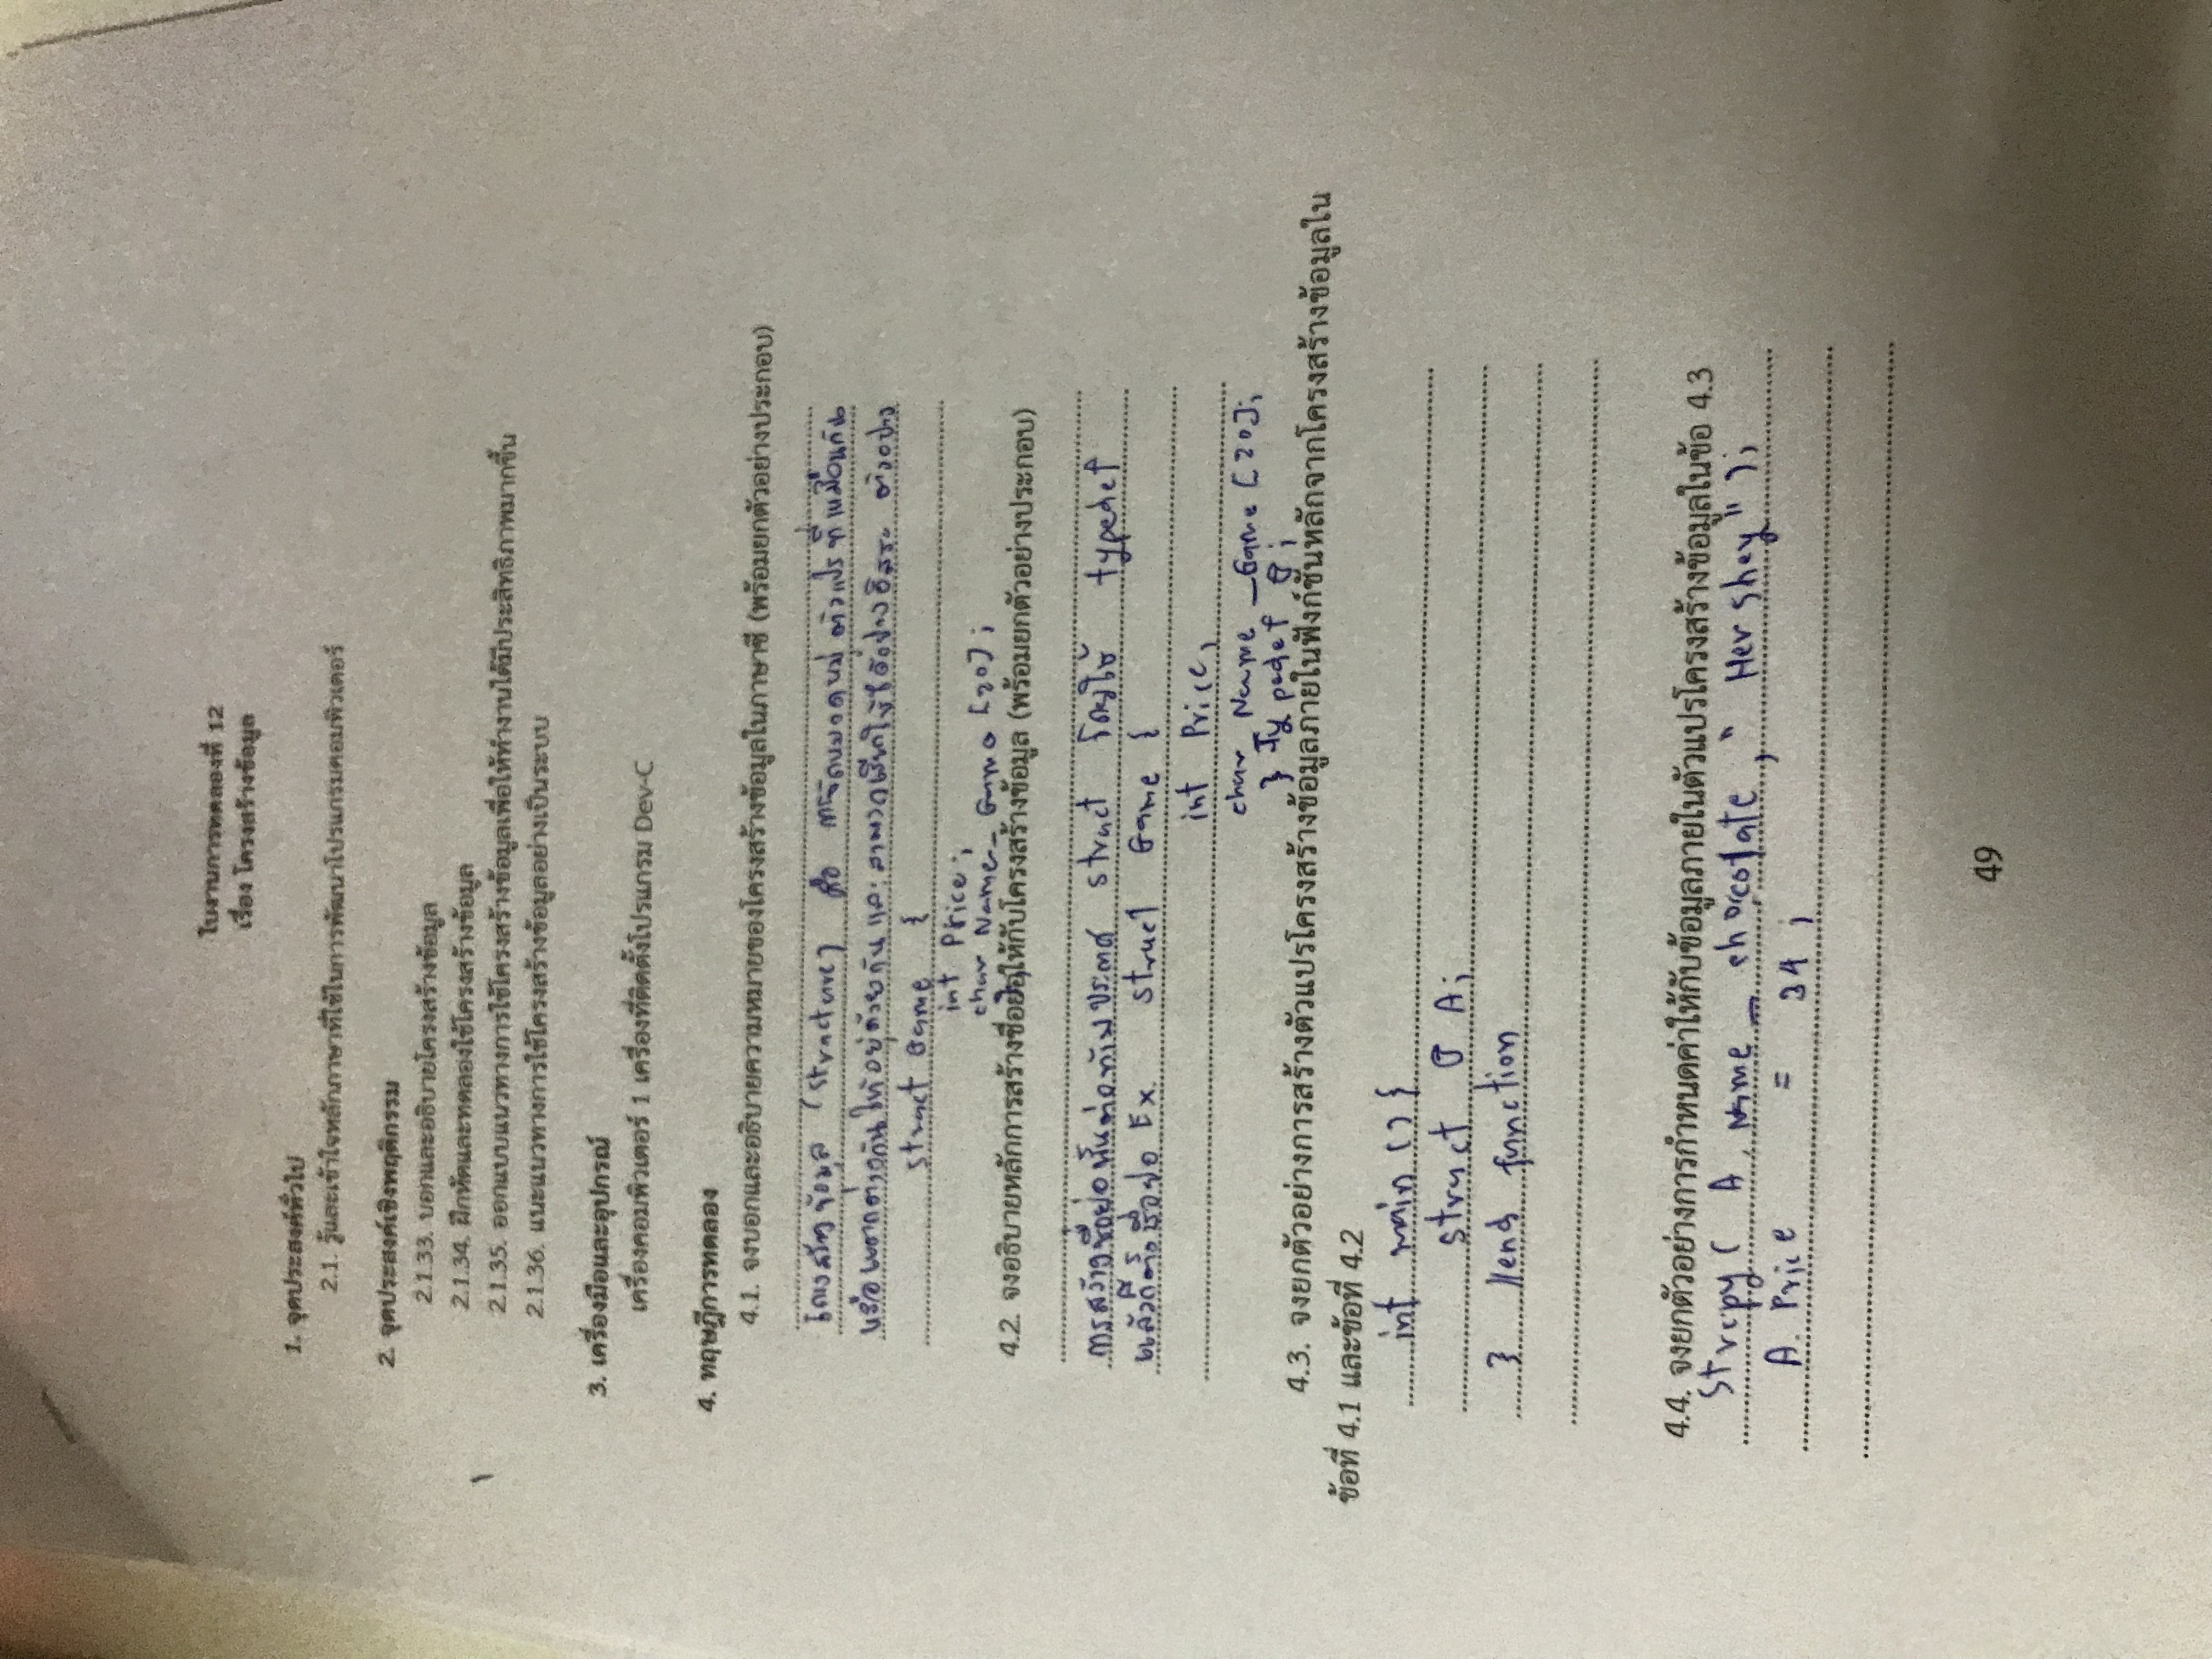 ใบงานการทดลองที่ 12
เรื่อง โครงสร้างข้อมูล
1. จุดประสงค์ทั่วไป
2.1. รู้และเข้าใจหลักภาษาที่ใช้ในการพัฒนาโปรแกรมคอมพิวเตอร์
2. จุดประสงค์เชิงพฤติกรรม
2.1.33. บอกและอธิบายโครงสร้างข้อมูล
2.1.34. ฝึกหัดและทดลองใช้โครงสร้างข้อมูล
2.1.35. ออกแบบแนวทางการใช้โครงสร้างข้อมูลเพื่อให้ทำงานได้มีประสิทธิภาพมากขึ้น
2.1.36. แนะแนวทางการใช้โครงสร้างข้อมูลอย่างเป็นระบบ
3. เครื่องมือและอุปกรณ์
เครื่องคอมพิวเตอร์ 1 เครื่องที่ติดตั้งโปรแกรม Dev-C
4. ทฤษฎีการทดลอง
4.1. จงบอกและอธิบายความหมายของโครงสร้างข้อมูลในภาษาซี (พร้อมยกตัวอย่างประกอบ)
โครงสร้างข้อมูล (Structure) คือ การจัดหมวดหมู่ ตัวแปร ที่เหมือนกัน
หรือแตกต่างกันให้อยู่ด้วยกัน และสามารถเรียกใช้ได้อย่างอิสระ ตัวอย่าง
struct Game {
int Price;
char Name_Game [20];
};
4.2. จงอธิบายหลักการสร้างชื่อย่อให้กับโครงสร้างข้อมูล (พร้อมยกตัวอย่างประกอบ)
การสร้างชื่อย่อนั้นต้องทำ ประกาศ struct โดยใช้ typedef
แล้วก็ตั้งชื่อย่อ Ex. struct Game {
int Price,
char Name_Game [20];
} Typedef G;
4.3. จงยกตัวอย่างการสร้างตัวแปรโครงสร้างข้อมูลภายในฟังก์ชันหลักจากโครงสร้างข้อมูลใน
ข้อที่ 4.1 และข้อที่ 4.2
int main () {
struct G A;
} //end function
4.4. จงยกตัวอย่างการกำหนดค่าให้กับข้อมูลภายในตัวแปรโครงสร้างข้อมูลในข้อ 4.3
Strcpy( A.Name_chocolate, " Hershey" );
A. Price = 34 ;
49